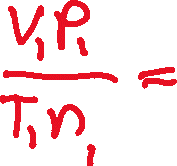 V₁P₁
T₁n₁ =